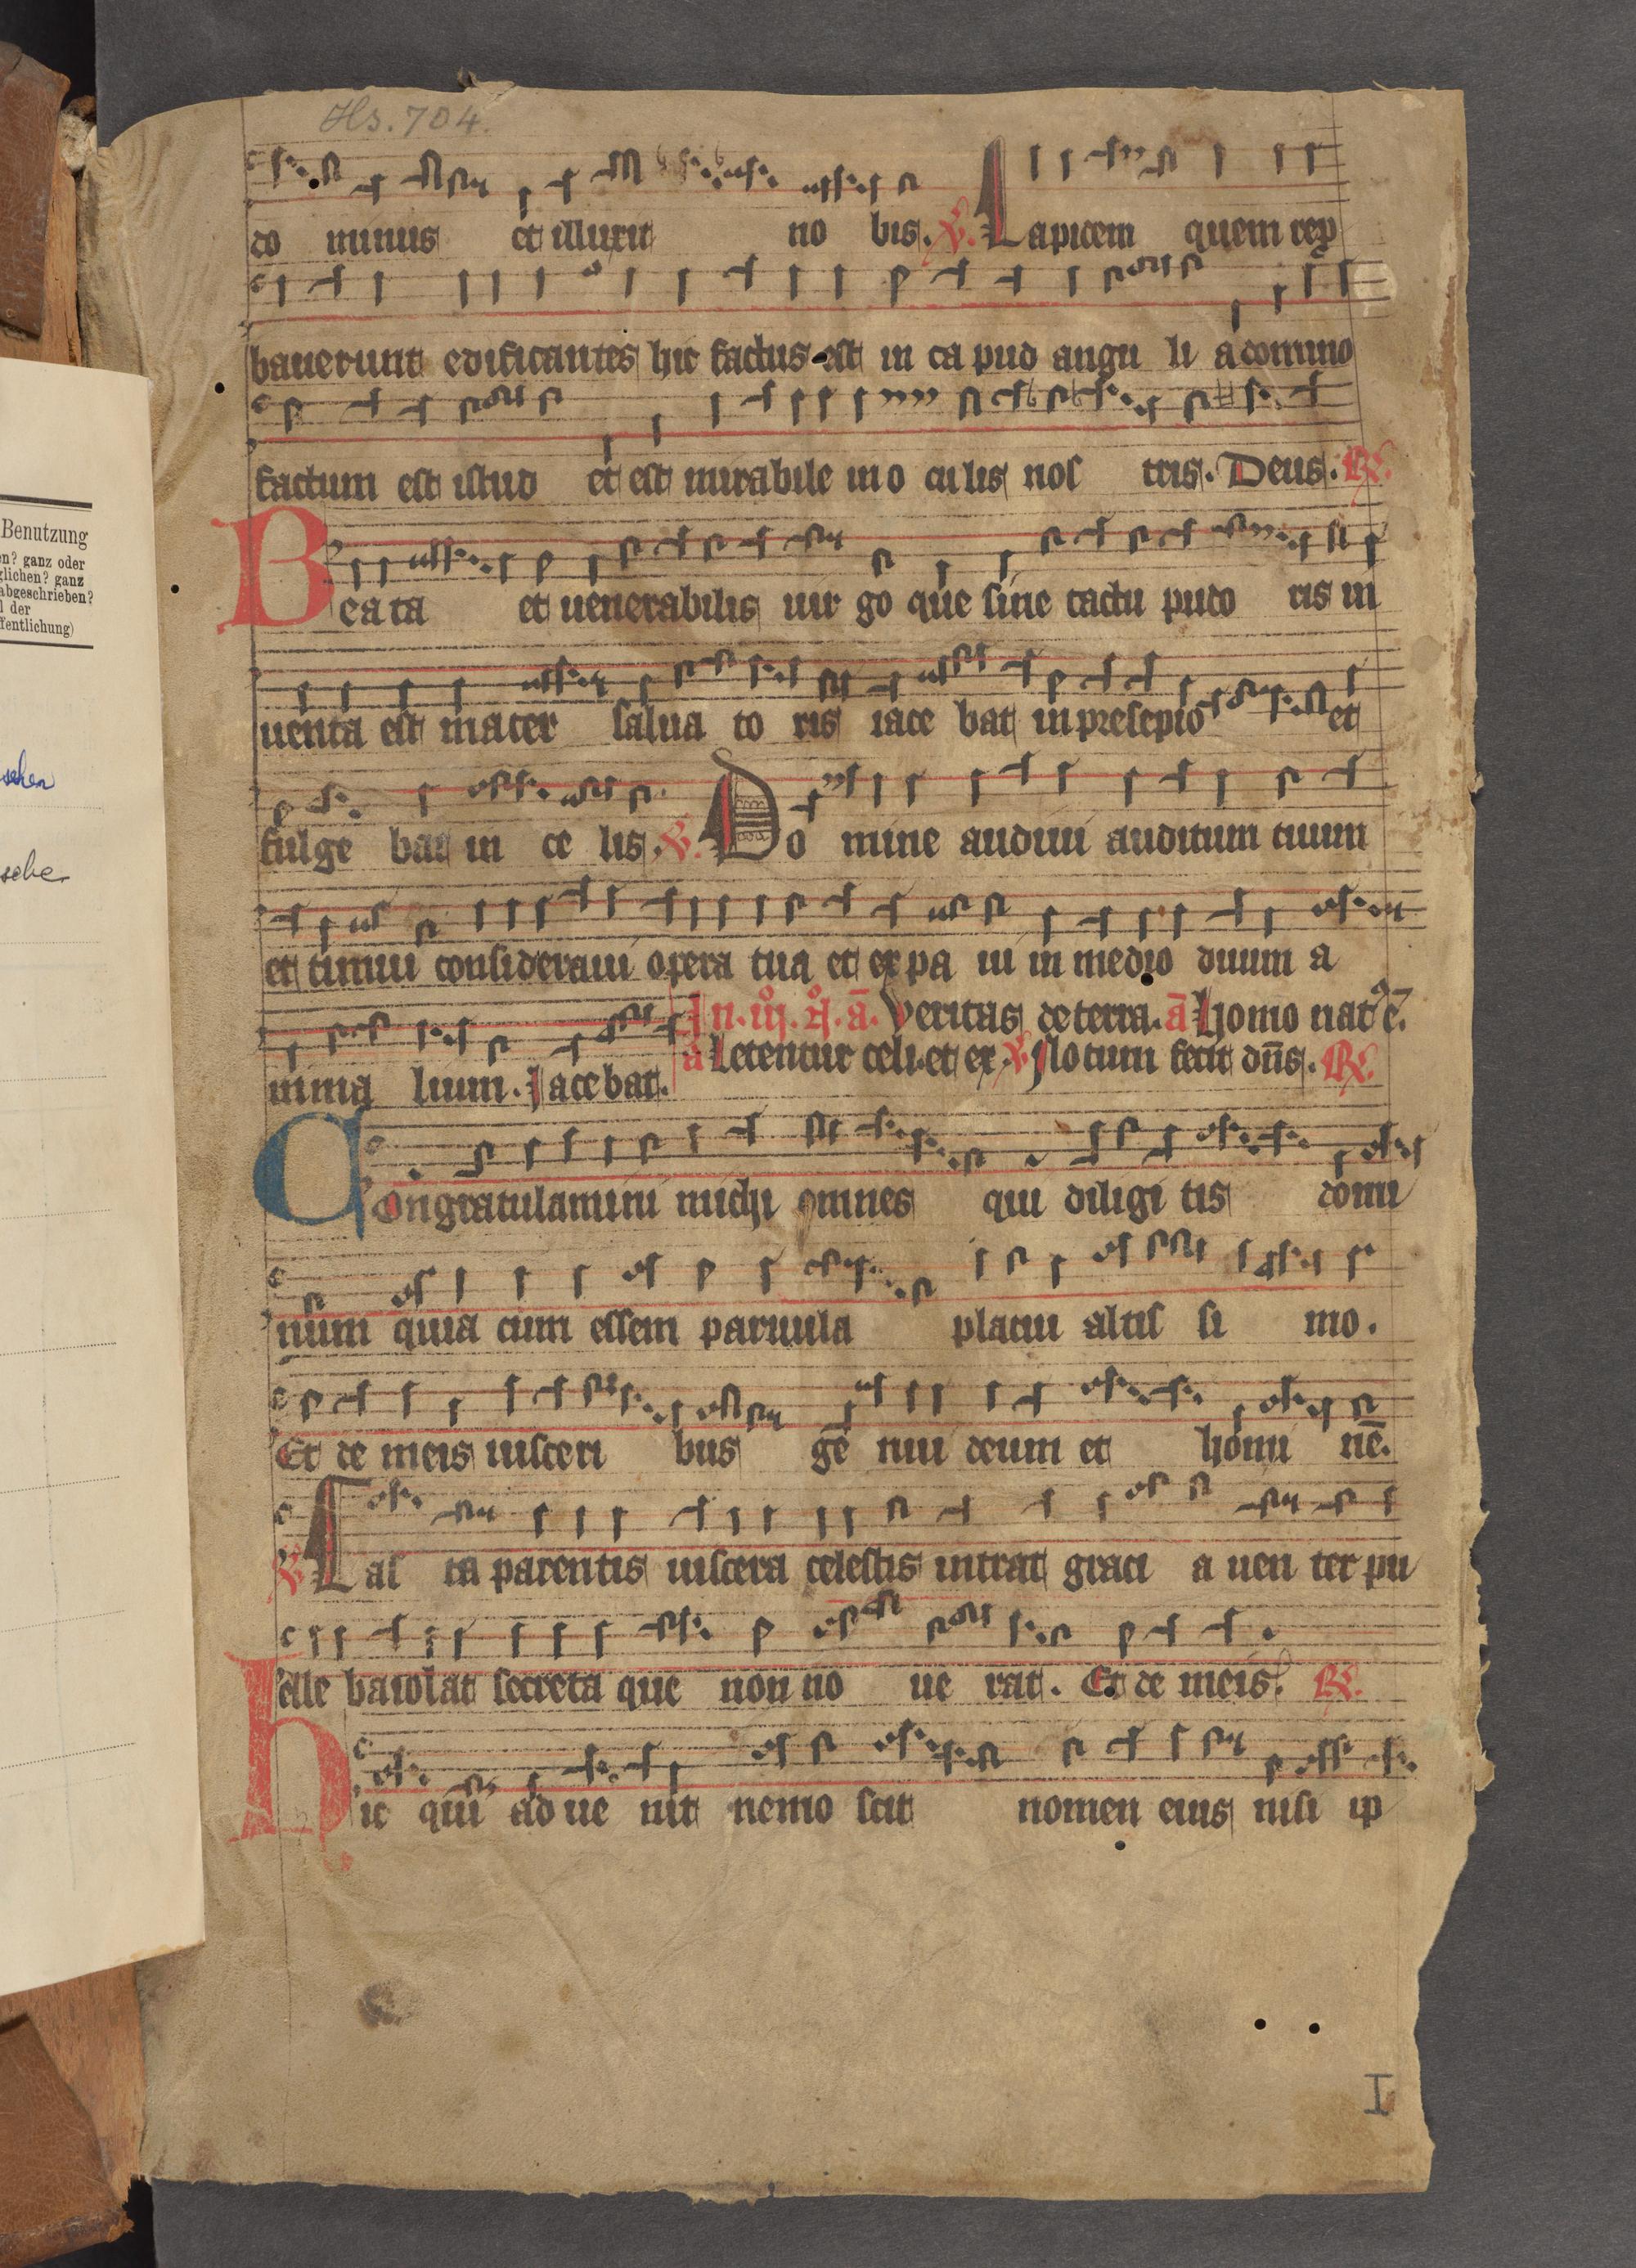 Hs. 704.
do minus et illuxit no bis. V. Lapidem quem rep
bauerunt edificantes hic factus est in ca pud angu li a domino
factum est istud et est mirabile in o culis nos tris. Deus. R.
Beata et uenerabilis uir go que sine tactu pudo ris in
uenta est mater salua to ris iace bat in presepio et
fulge bat in ce lis. V. Do mine audiui auditum tuum
et timui consideraui opera tua et expa ui in medio duum a
In. iij. N. a. Veritas de terra. a Homo nat e.
a Letentur celi. et ex. V Notum fecit dns. R.
nima lium. Jacebat.
Congratulamini michi omnes qui diligi tis domi
num quia cum essem paruula placui altis si mo.
Et de meis uisceri bus ge nui deum et homi ne.
V Cas ta parentis uiscera celestis intrat graci a uen ter pu
elle baiolat secreta que non no ue rat. Et de meis. R.
Hic qui ad ue nit nemo scit nomen eius nisi ip
I
Benutzung
en? ganz oder
glichen? ganz
abgeschrieben?
l der
fentlichung)
sehen